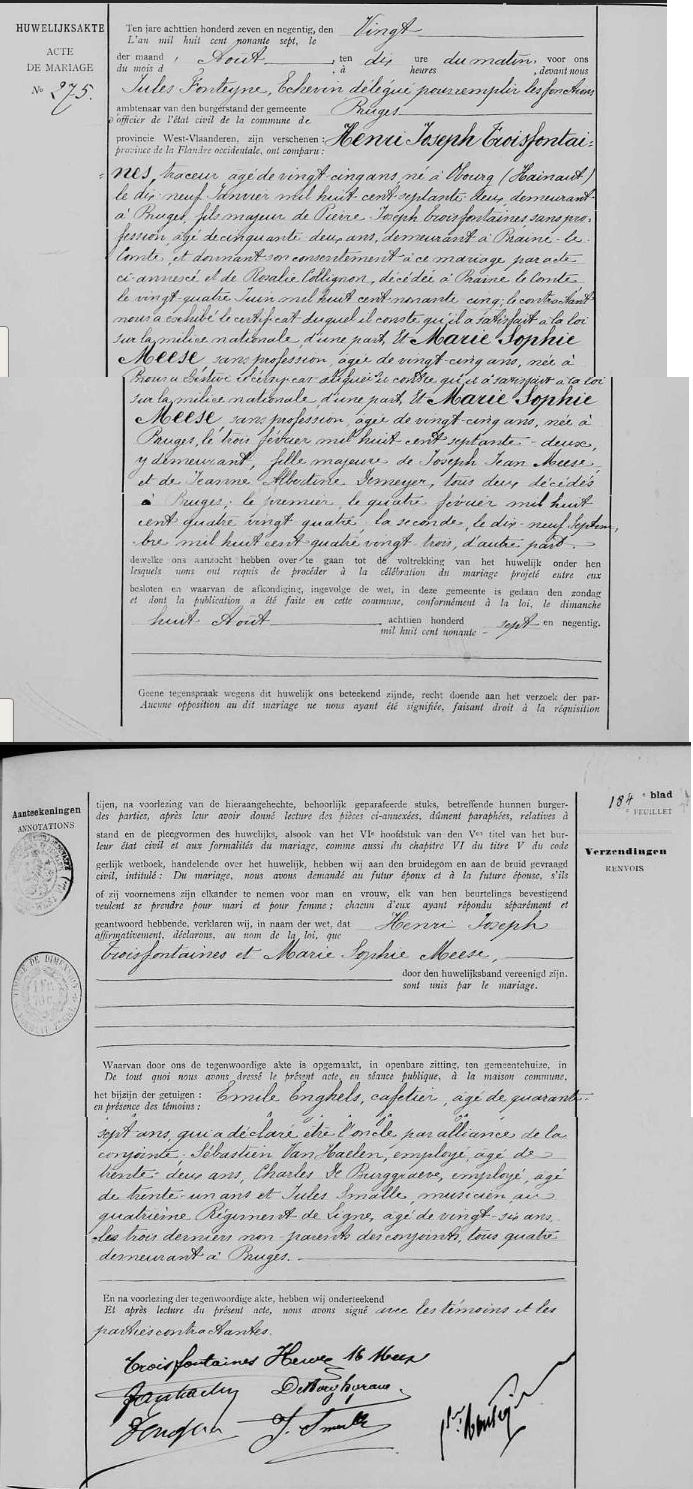 HUWELIJKSAKTE
ACTE
DE MARIAGE
No 275.
Ten jare achttien honderd zeven en negentig, den Vingt
L'an mil huit cent nonante sept, le
der maand Août, ten dix ure du matin, voor ons
du mois d , à heures , devant nous
Jules Fonteyne, Echevin délégué pour remplir les fonctions
ambtenaar van den burgerstand der gemeente Bruges
d'officier de l'état civil de la commune de
provincie West-Vlaanderen, zijn verschenen: Henri Joseph Troisfontai=
province de la Flandre occidentale, ont comparu:
=nes, traceur âgé de vingt cinq ans, né à Obourg (Hainaut)
le dix neuf Janvier mil huit cent septante deux, demeurant
à Bruges, fils majeur de Pierre Joseph troisfontaines sans pro-
fession, âgé de cinquante deux ans, demeurant à Braine-le-
Comte, et donnant son consentement à ce mariage par acte
ci-annexé et de Rosalie Collignon, décédée à Braine le Comte
le vingt quatre Juin mil huit cent nonante cinq; le contractant
nous a exhibé le certificat duquel il conste qu'il a satisfait à la loi
sur la milice nationale d'une part, Et Marie Sophie
Meese sans profession, âgée de vingt-cinq ans, née à
sur la milice nationale d'une part, Et Marie Sophie
Meese, sans profession, âgée de vingt-cinq ans, née à
Bruges, le trois février mil huit cent septante-deux,
y demeurant, fille majeure de Joseph Jean Meese,
et de Jeanne Albertine Demeyer, tous deux décédés
à Bruges; le premier, le quatre février mil huit
cent quatre vingt quatre, la seconde, le dix-neuf Septem,
bre mil huit cent quatre vingt trois, d'autre part
dewelke ons aanzocht hebben over te gaan tot de voltrekking van het huwelijk onder hen
lesquels nous ont requis de procéder à la célébration du mariage projeté entre eux
besloten en waarvan de afkondiging, ingevolge de wet, in deze gemeente is gedaan den zondag
et dont la publication a été faite en cette commune, conformément à la loi, le dimanche
huit Août achttien honderd sept en negentig.
mil huit cent nonante -
Geene tegenspraak wegens dit huwelijk ons beteekend zijnde, recht doende aan het verzoek der par-
Aucune opposition au dit mariage ne nous ayant été signifiée, faisant droit à la réquisition
Aanteekeningen
ANNOTATIONS
184e blad
FEUILLET
Verzendingen
RENVOIS
tijen, na voorlezing van de hieraangehechte, behoorlijk geparafeerde stuks, betreffende hunnen burger-
des parties, après leur avoir donné lecture des pièces ci-annexées, dûment paraphées, relatives à
stand en de pleegvormen des huwelijks, alsook van het VIe hoofdstuk van den Ven titel van het bur-
leur état civil et aux formalités du mariage, comme aussi du chapitre VI du titre V du code
gerlijk wetboek, handelende over het huwelijk, hebben wij aan den bruidegom en aan de bruid gevraagd
civil, intitulé: Du mariage, nous avons demandé au futur époux et à la future épouse, s'ils
of zij voornemens zijn elkander te nemen voor man en vrouw, elk van hen beurtelings bevestigend
veulent se prendre pour mari et pour femme; chacun d'eux ayant répondu séparément et
geantwoord hebbende, verklaren wij, in naam der wet, dat Henri Joseph
affirmativement, déclarons, au nom de la loi, que
troisfontaines et Marie Sophie Meese,
door den huwelijksband vereenigd zijn.
sont unis par le mariage.
Waarvan door ons de tegenwoordige akte is opgemaakt, in openbare zitting, ten gemeentehuize, in
De tout quoi nous avons dressé le présent acte, en séance publique, à la maison commune,
het bijzijn der getuigen: Emile Enghels, cafetier, âgé de quarante-
en présence des témoins:
sept ans, qui a déclaré être l'oncle par alliance de la
conjointe. Sébastien Van Haelen, employé, âgé de
trente-deux ans, Charles De Burggraeve, employé, âgé
de trente-un ans et Jules Smalle, musicien au
quatrième Régiment de Ligne, âgé de vingt-six ans,
les trois derniers non-parents des conjoints, tous quatre
demeurant à Bruges.
En na voorlezing der tegenwoordige akte, hebben wij onderteekend
Et après lecture du présent acte, nous avons signé avec les témoins et les
parties contractantes.
Troisfontaines Henri M Meese
J. Smalle